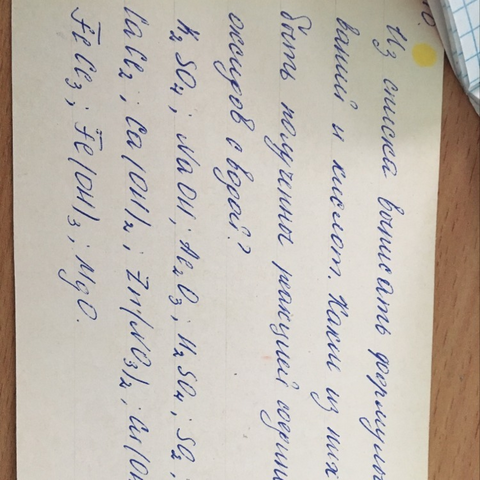 Из списка выписать формулы
ваний и кислот. Какие из них
быть получены реакцией соедин
оксидов с водой?
K₂SO₄; NaOH; Al₂O₃; H₂SO₄; SO₂;
CaCl₂; Ca(OH)₂; Zn(NO₃)₂; Cr(OH
FeCl₃; Fe(OH)₃; MgO.